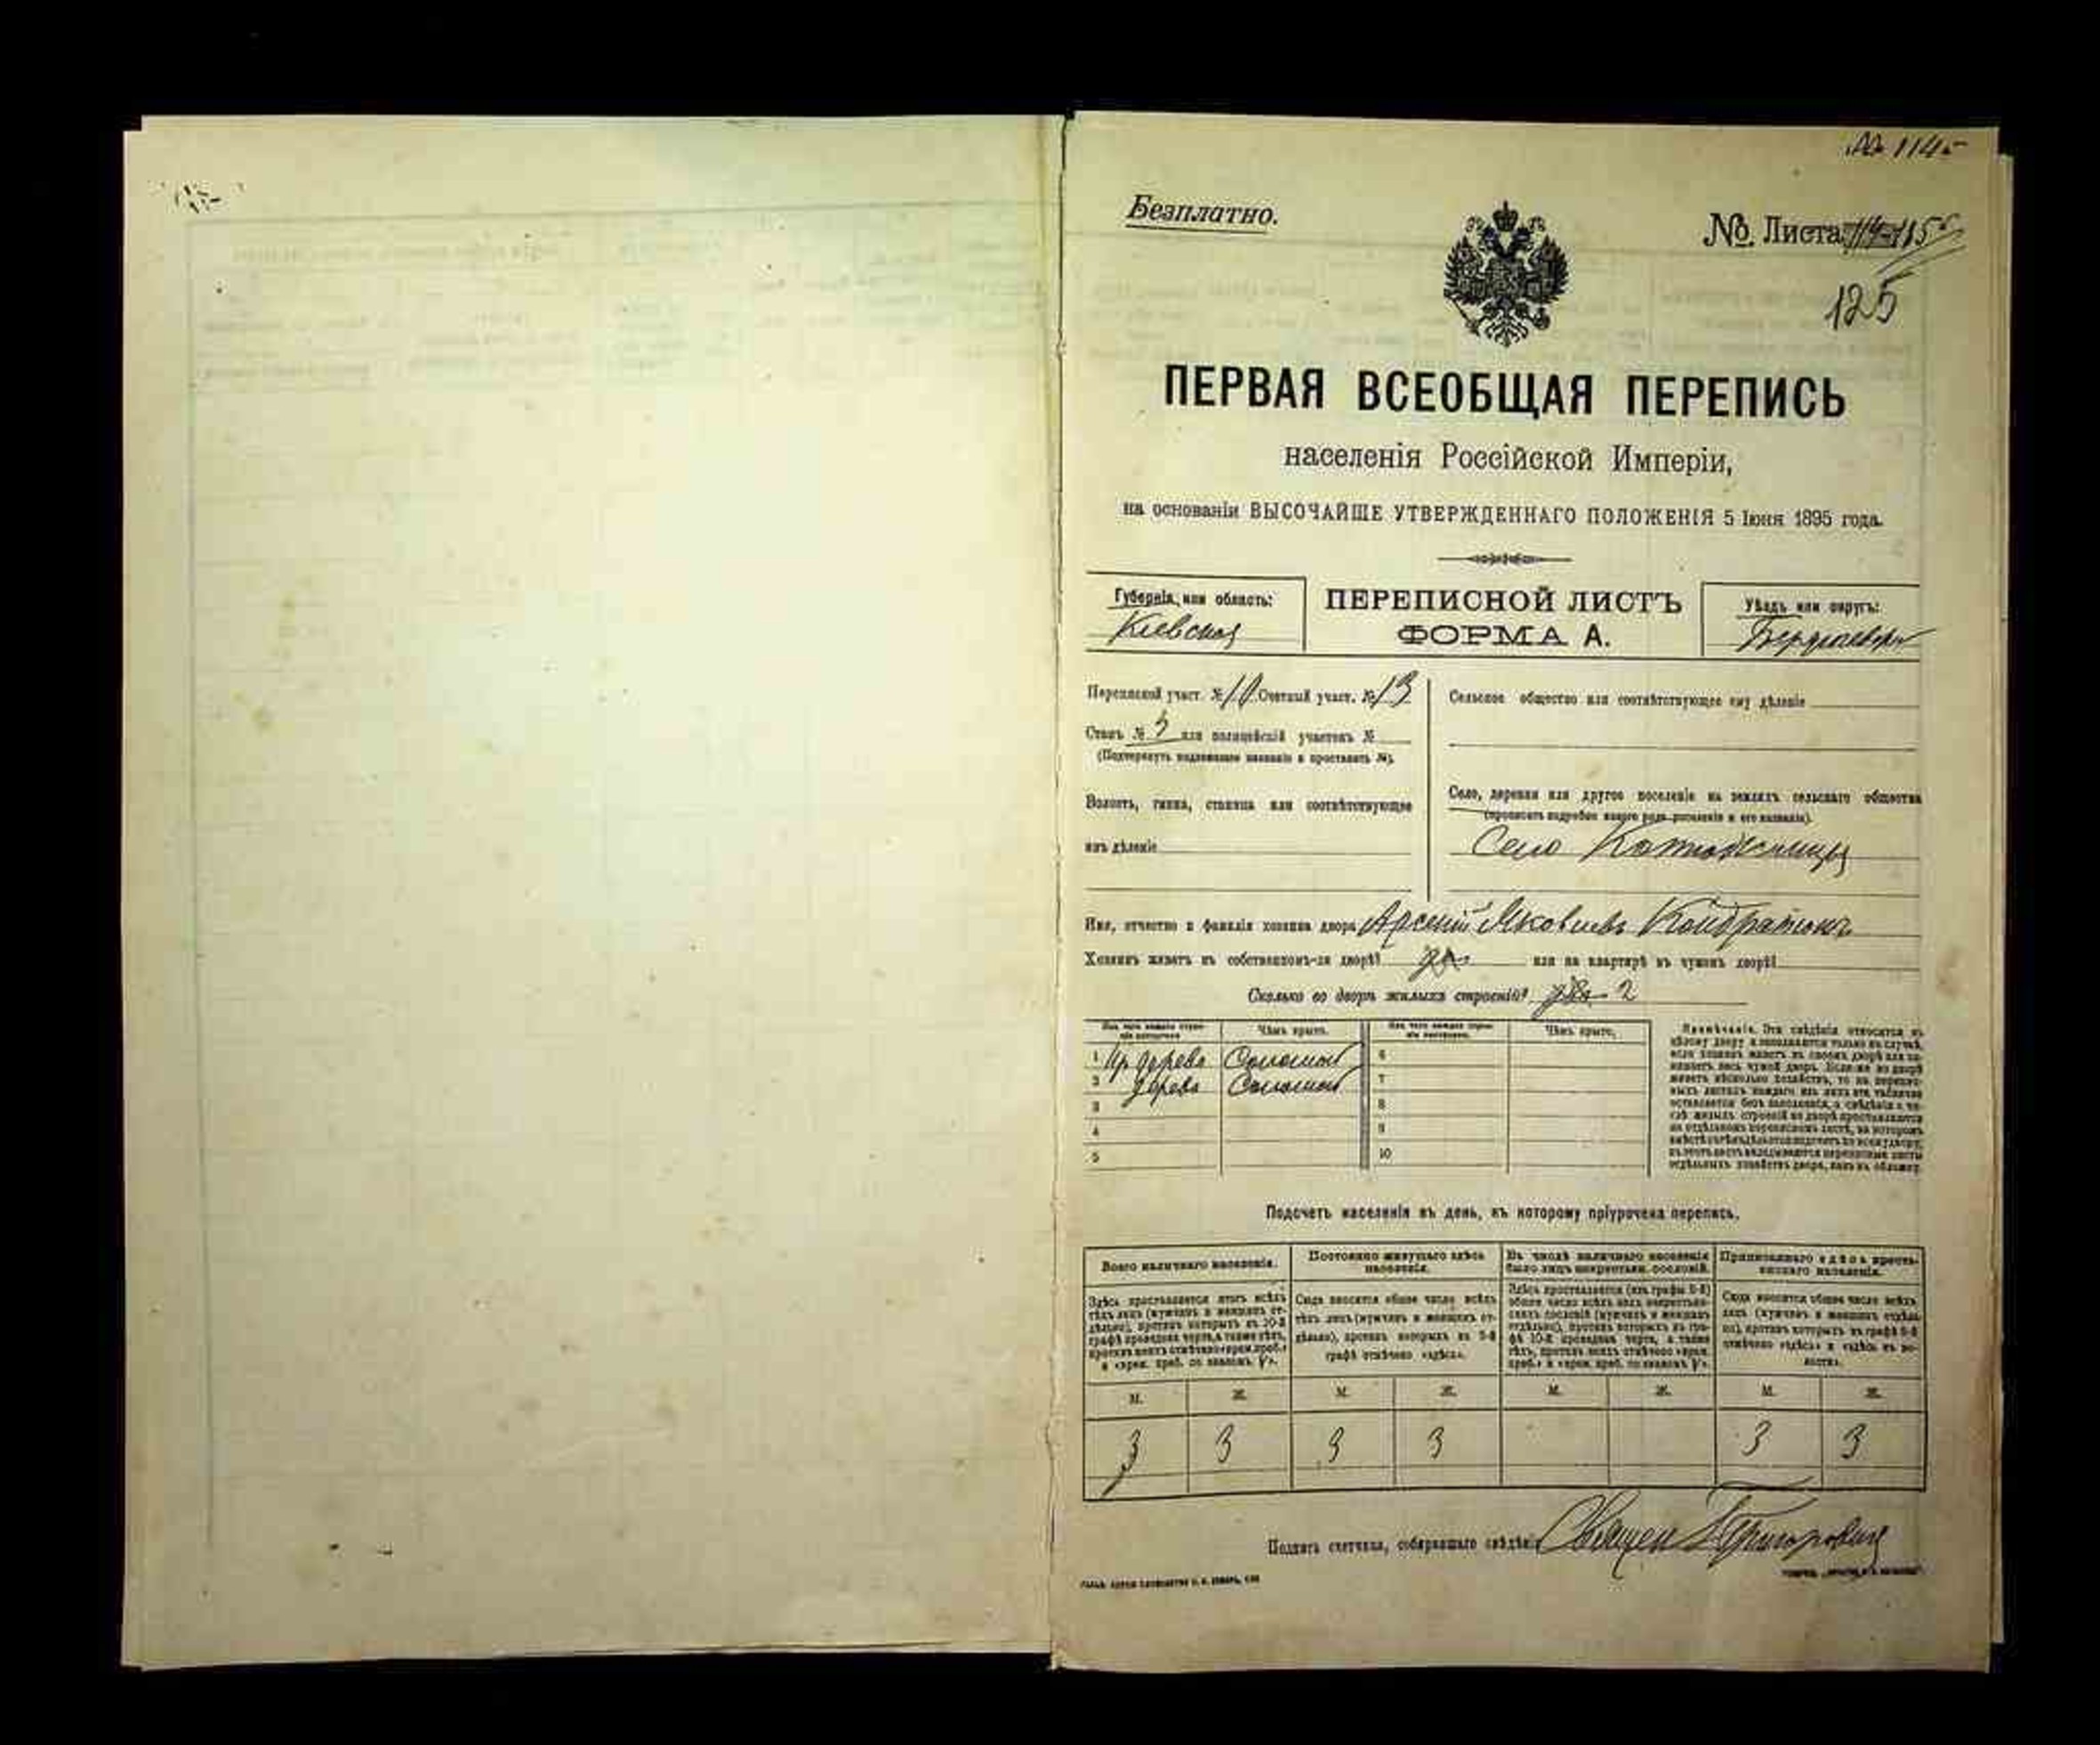 № 1145
Безплатно.
№ Листа
125
ПЕРВАЯ ВСЕОБЩАЯ ПЕРЕПИСЬ
населенія Россійской Имперіи,
на основаніи ВЫСОЧАЙШЕ УТВЕРЖДЕННАГО ПОЛОЖЕНІЯ 5 Іюня 1895 года.
Губернія, или область:
Кіевская
ПЕРЕПИСНОЙ ЛИСТЪ
ФОРМА А.
Уѣздъ или округъ:
Переписной участ. № 10 Счетный участ. № 13
Станъ № 3 или полицейскій участокъ №
(Подчеркнуть надлежащее названіе и проставить №).
Волость, гмина, станица или соотвѣтствующее
имъ дѣленіе
Сельское общество или соотвѣтствующее ему дѣленіе
Село, деревня или другое поселеніе на земляхъ сельскаго общества
(прописать подробно какого рода поселеніе и его названіе).
Село
Имя, отчество и фамилія хозяина двора Арсеній Яковлевъ
Хозяинъ живетъ въ собственномъ-ли дворѣ? да или на квартирѣ въ чужомъ дворѣ?
Сколько во дворѣ жилыхъ строеній? 2
Изъ чего каждое строеніе построено. Чѣмъ крыто. Изъ чего каждое строеніе построено. Чѣмъ крыто.
1 дерева Соломою 6
2 дерева Соломою 7
3 8
4 9
5 10
Примѣчаніе. Эти свѣдѣнія относятся къ
цѣлому двору и показываются только въ случаѣ,
если хозяинъ живетъ въ своемъ дворѣ или за-
нимаетъ весь чужой дворъ. Если же во дворѣ
живетъ нѣсколько хозяйствъ, то на перепис-
ныхъ листахъ каждаго изъ нихъ эта табличка
оставляется безъ заполненія, а свѣдѣнія о чи-
слѣ жилыхъ строеній во дворѣ проставляются
на отдѣльномъ переписномъ листѣ, на которомъ
въ этотъ листъ вкладываются переписные листы
отдѣльныхъ хозяйствъ двора, какъ въ обложку.
Подсчетъ населенія въ день, къ которому пріурочена перепись.
Всего наличнаго населенія.
Постоянно живущаго здѣсь
населенія.
Въ числѣ наличнаго населенія
было лицъ некрестьян. сословій.
Приписаннаго здѣсь кресть-
янскаго населенія.
Здѣсь проставляется итогъ всѣхъ
тѣхъ лицъ (мужчинъ и женщинъ от-
дѣльно), противъ которыхъ въ 10-й
графѣ проведена черта, а также тѣхъ,
противъ коихъ отмѣчено «врем. преб.»
и «врем. преб. со знакомъ V».
Сюда вносится общее число всѣхъ
тѣхъ лицъ (мужчинъ и женщинъ от-
дѣльно), противъ которыхъ въ 9-й
графѣ отмѣчено «здѣсь».
Здѣсь проставляется (изъ графы 5-й)
общее число всѣхъ лицъ некрестьян-
скихъ сословій (мужчинъ и женщинъ
отдѣльно), противъ которыхъ въ гра-
фѣ 10-й проведена черта, а также
тѣхъ, противъ коихъ отмѣчено «врем.
преб.» и «врем. преб. со знакомъ V».
Сюда вносится общее число всѣхъ
лицъ (мужчинъ и женщинъ отдѣль-
но), противъ которыхъ въ графѣ 8-й
отмѣчено «здѣсь» и «здѣсь въ во-
лости».
М. Ж. М. Ж. М. Ж. М. Ж.
3 3 3 3 3 3
Подпись счетчика, собиравшаго свѣдѣн. Священ. Григоровичъ